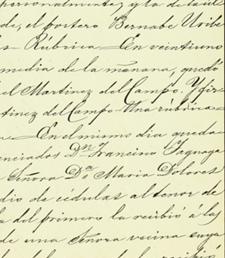 personalmente, y lo de la ul
de, el portero Bernabe Uribe
Rúbrica — En veintiuno
media de la mañana, quedó
el Martinez del Campo. Y fir
tinez del Campo — Una rúbrica
— En el mismo dia queda
enciados Dn. Francisco
Señora Da. Maria Dolores
dio de cédulas al tenor de
del primero la recibió á las
de una Señora vecina cuya